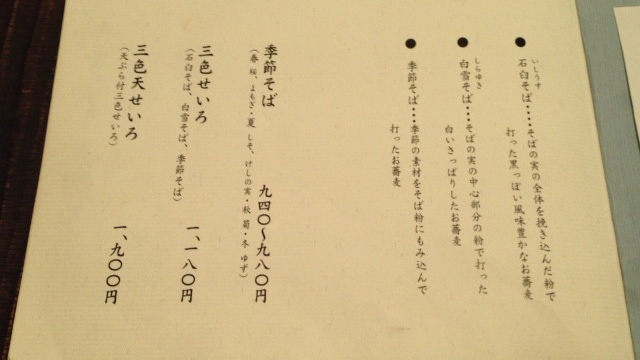 いしうす
● 石臼そば・・・・・そばの実の全体を挽き込んだ粉で
打った黒っぽい風味豊かなお蕎麦
しらゆき
● 白雪そば・・・そばの実の中心部分の粉で打った
白いさっぱりしたお蕎麦
● 季節そば・・・季節の素材をそば粉にもみ込んで
打ったお蕎麦
季節そば 九四〇〜九八〇円
(春 桜、よもぎ・夏 しそ、けしの実・秋 菊・冬 ゆず)
三色せいろ 一、一八〇円
(石臼そば、白雪そば、季節そば)
三色天せいろ 一、九〇〇円
(天ぷら付三色せいろ)